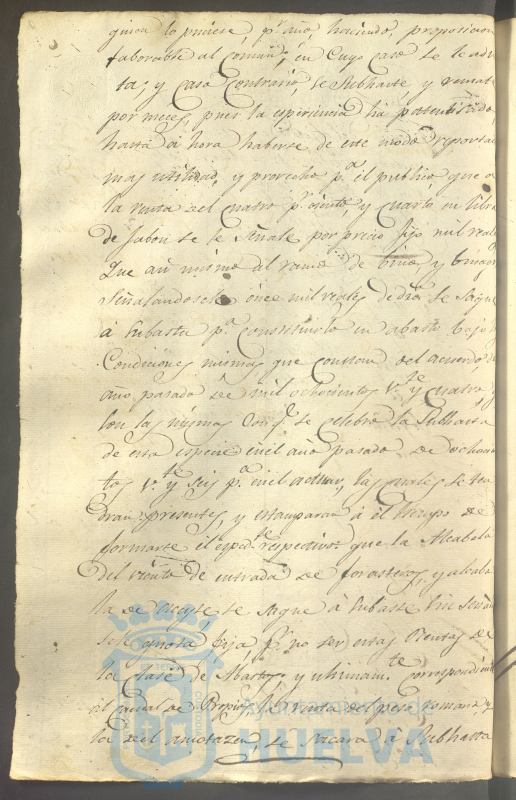 lo hiciese, pr. año, haciendo proposicion
faborable al comun, en Cuyo caso se le admi
ta, y caso contrario se Subhaste, y remate
por meses, pues la esperiencia ha patentisado,
hasta á hora haberse de este modo reportado
mas utilidad, y provecho pa. el publico, que
la renta del quatro pr. ciento, y cuarto en libra
de Jabon se le Señale por precio fijo mil reales
Que asi mismo al ramo de vino, y vinagre
Señalandosele once mil reales de dho. se Saque
á Subasta pa. constituirlo en abasto bajo
Condiciones mismas que constan del acuerdo de
año pasado de mil ochocientos Vte. y cuatro y
con las mismas con qe. se celebró la Subhasta
de esta especie en el año pasado de ochocien
tos Vte. y Seis pa. en el actual, las quales se ten
dran presentes, y estamparan á el tiempo de
formarse el espedte. respectivo: que la Alcabala
del viento de entrada de forasteros, y alcaba
la de Aceyte se Saque á Subasta sin Señalar
sele quota fija pr. no ser estas Rentas de
la clase de Abastos, y ultimamte. correspondiente
al ramo de Propios, la renta del peso romana y
la del amotazen, se sacara á Subhasta
Ayuntamiento de
HUELVA